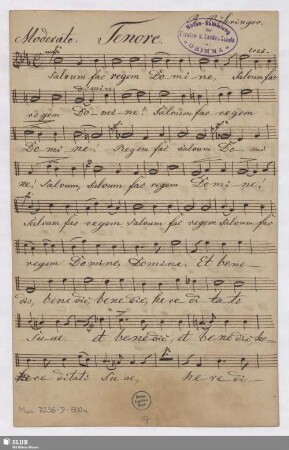 Moderato. Tenore.
cres-
Salvum fac regem Domine, Salvum fac
dimin
regem Domine! Salvum fac regem
Domine! Regem fac salvum Domi
ne! Salvum, salvum fac regem Domine!
Salvum fac regem salvum fac regem salvum fac
regem Domine, Domine. Et bene-
dic, benedic, benedic, heredita ti
tuae et benedic, et benedic, he-
reditati tuae, heredi-
Mus. 7236-D-500a
9
SLUB